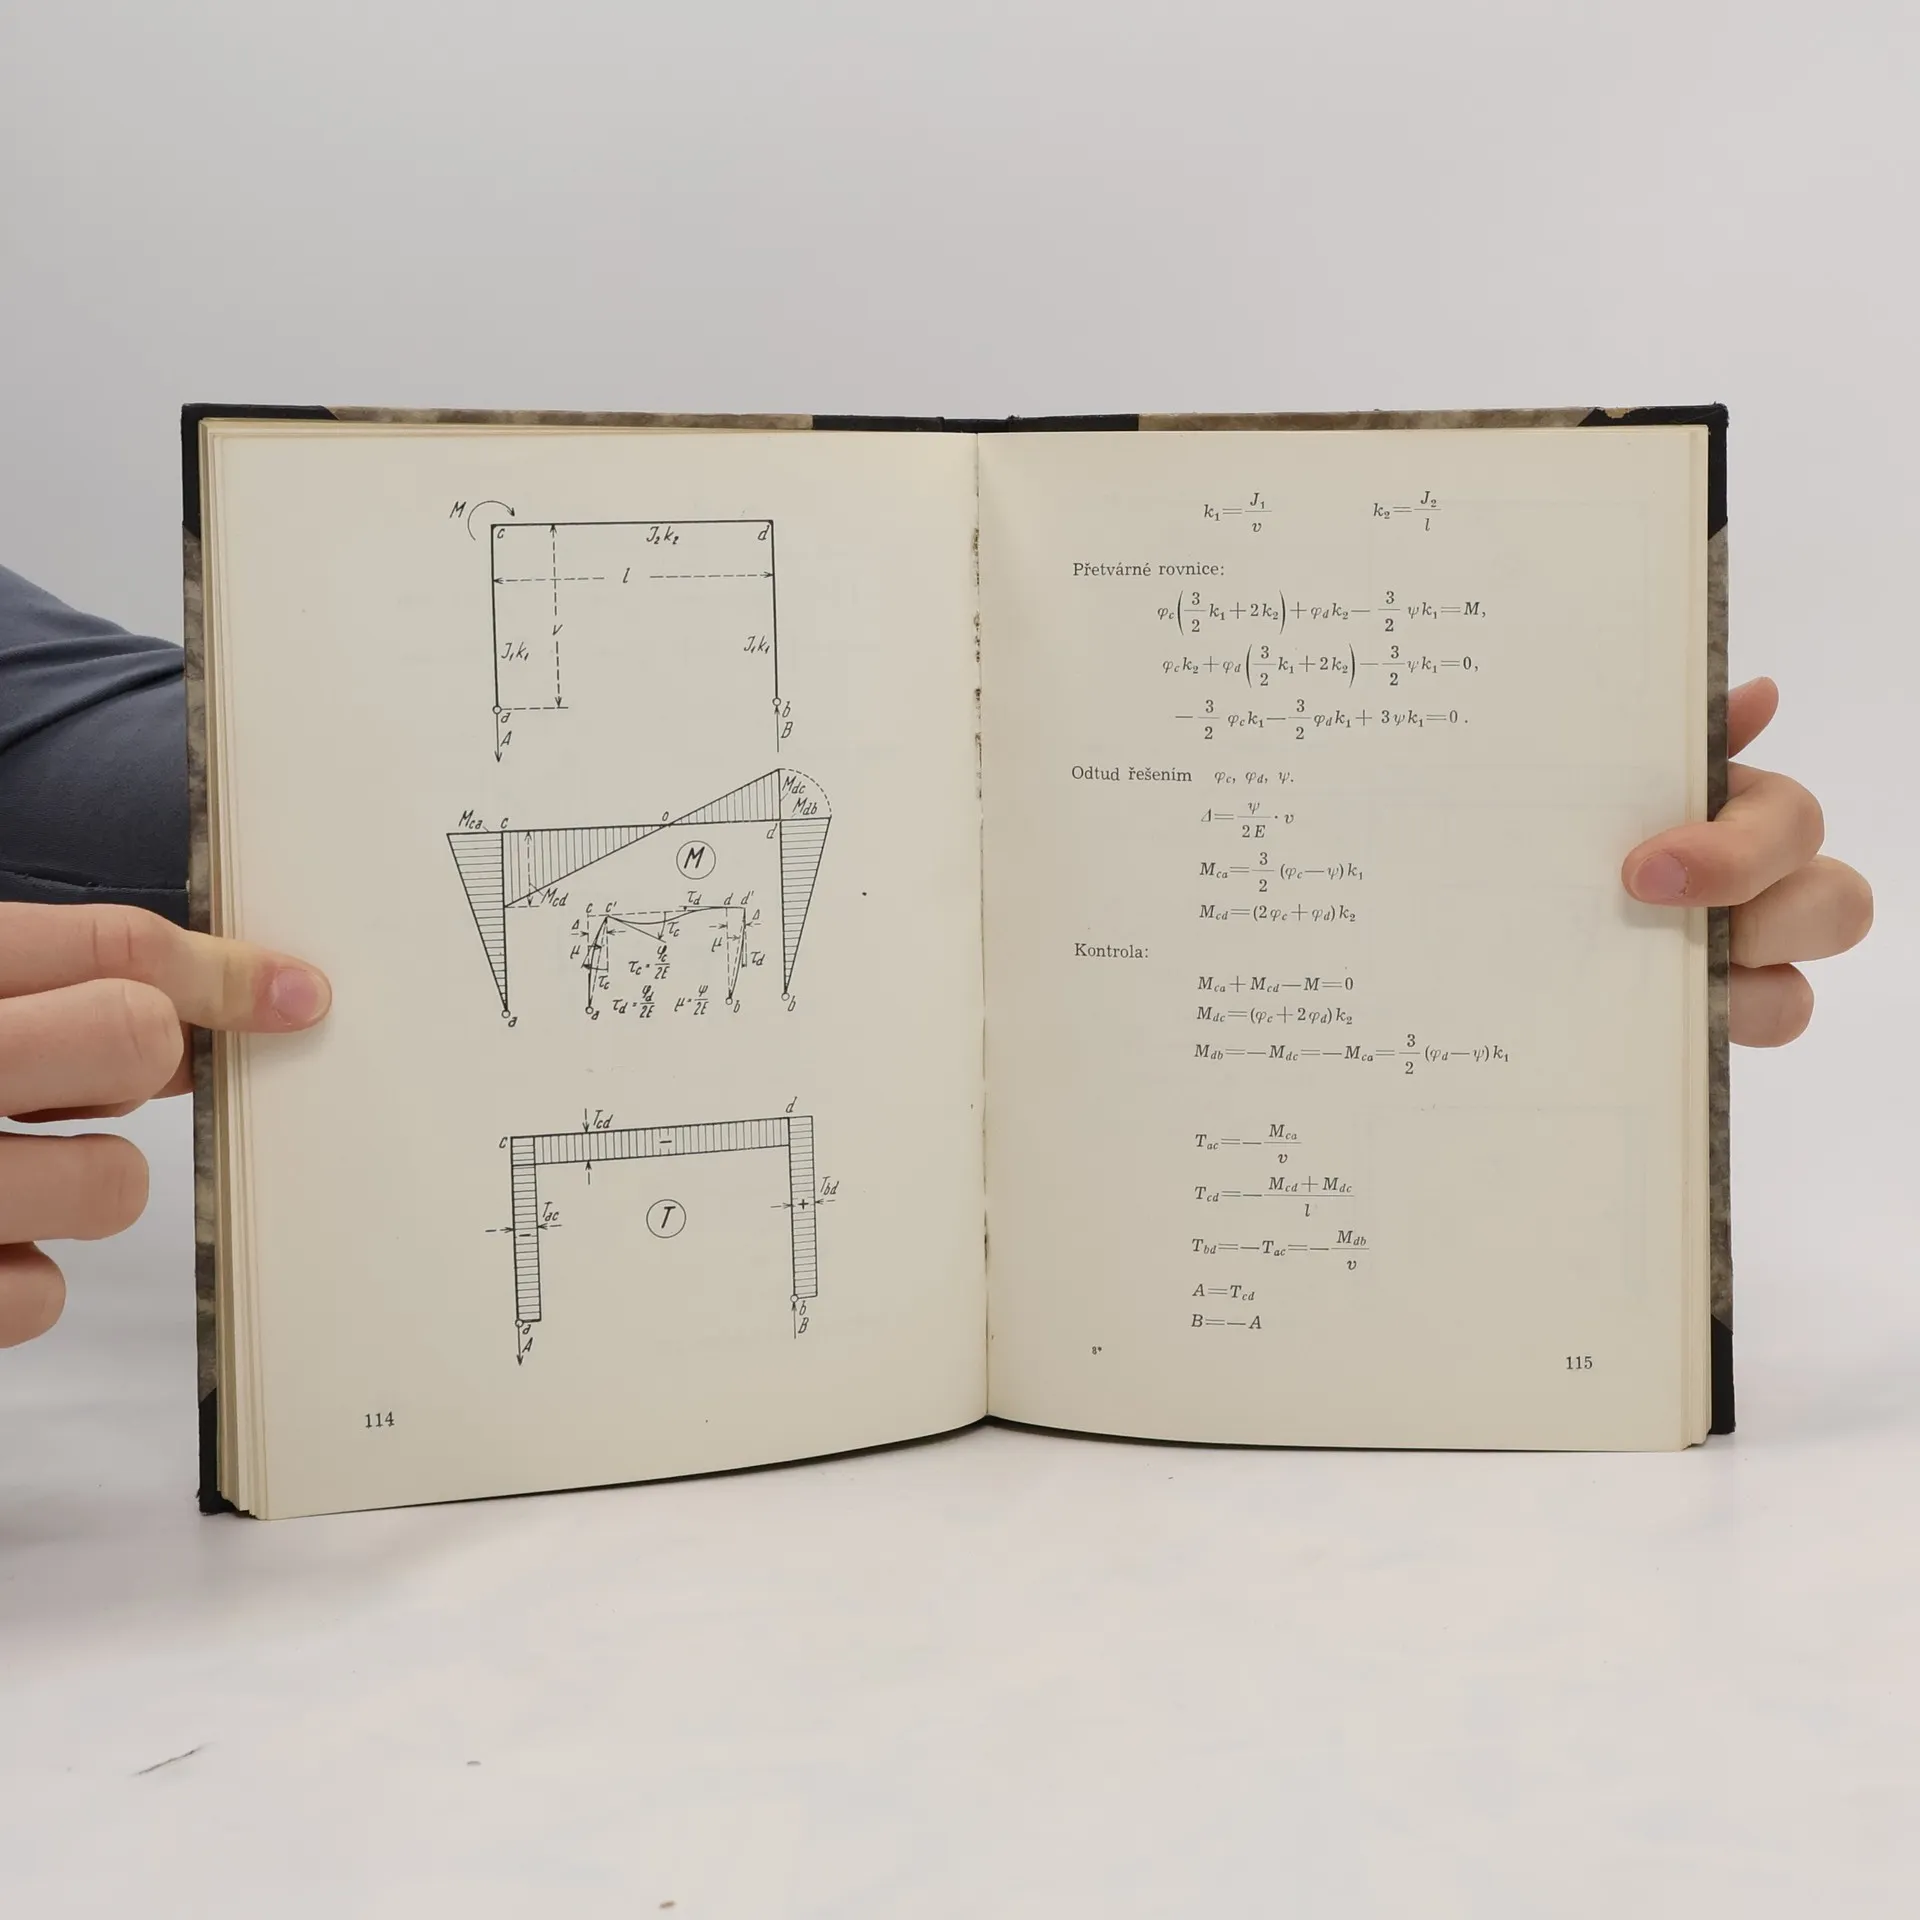 M
c
J₂ k₂
d
l
v
J₁ k₁
J₁ k₁
a
b
A
B
Mca
c
o
Mdc
Mdb
d
M
Mcd
c c'
τd
d d'
Δ
Δ
τc
μ
μ
τd
τc
τc = φc/2E
τd = φd/2E
μ = ψ/2E
a
a
b
b
Tcd
d
c
−
Tbd
+
Tac
−
T
a
A
b
B
114
k₁ = J₁/v k₂ = J₂/l
Přetvárné rovnice:
φc (3/2 k₁ + 2 k₂) + φd k₂ − 3/2 ψ k₁ = M,
φc k₂ + φd (3/2 k₁ + 2 k₂) − 3/2 ψ k₁ = 0,
− 3/2 φc k₁ − 3/2 φd k₁ + 3 ψ k₁ = 0 .
Odtud řešením φc, φd, ψ.
Δ = ψ/2 E · v
Mca = 3/2 (φc − ψ) k₁
Mcd = (2 φc + φd) k₂
Kontrola:
Mca + Mcd − M = 0
Mdc = (φc + 2 φd) k₂
Mdb = − Mdc = − Mca = 3/2 (φd − ψ) k₁
Tac = − Mca/v
Tcd = − Mcd + Mdc/l
Tbd = − Tac = − Mdb/v
A = Tcd
B = − A
8*
115